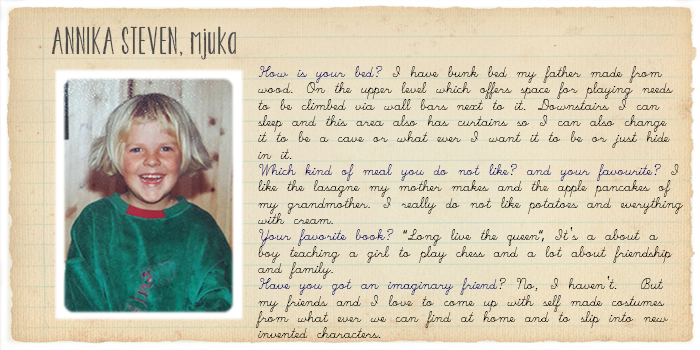 ANNIKA STEVEN, mjuka
How is your bed? I have bunk bed my father made from
wood. On the upper level which offers space for playing needs
to be climbed via wall bars next to it. Downstairs I can
sleep and this area also has curtains so I can also change
it to be a cave or what ever I want it to be or just hide
in it.
Which kind of meal you do not like? and your favourite? I
like the lasagne my mother makes and the apple pancakes of
my grandmother. I really do not like potatoes and everything
with cream.
Your favorite book? "Long live the queen", It's a about a
boy teaching a girl to play chess and a lot about friendship
and family.
Have you got an imaginary friend? No, I haven't. But
my friends and I love to come up with self made costumes
from what ever we can find at home and to slip into new
invented characters.